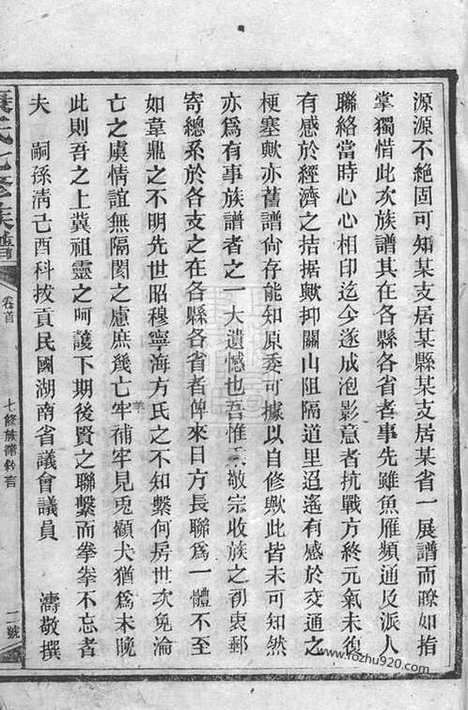 源源不絕固可知某支居某縣某支居某省一展譜而瞭如指
掌獨惜此次族譜其在各縣各省者事先雖魚雁頻通及派人
聯絡當時心心相印迄今遂成泡影意者抗戰方終元氣未復
有感於經濟之拮据歟抑關山阻隔道里迢遙有感於交通之
梗塞歟亦舊譜尙存能知原委可據以自修歟此皆未可知然
亦爲有事族譜者之一大遺憾也吾惟敬宗收族之初衷郵
寄總系於各支之在各縣各省者俾來日方長聯爲一體不至
如韋鼎之不明先世昭穆寧海方氏之不知繫何房世次免淪
亡之虞情誼無隔閡之慮庶幾亡牢補牢見兎顧犬猶爲未晚
此則吾之上冀祖靈之呵護下期後賢之聯繫而拳拳不忘者
夫
嗣孫淸己酉科拔貢民國湖南省議會議員 濤敬撰
氏七修族譜
卷首
七修族譜
二號
www.rozhu920.com